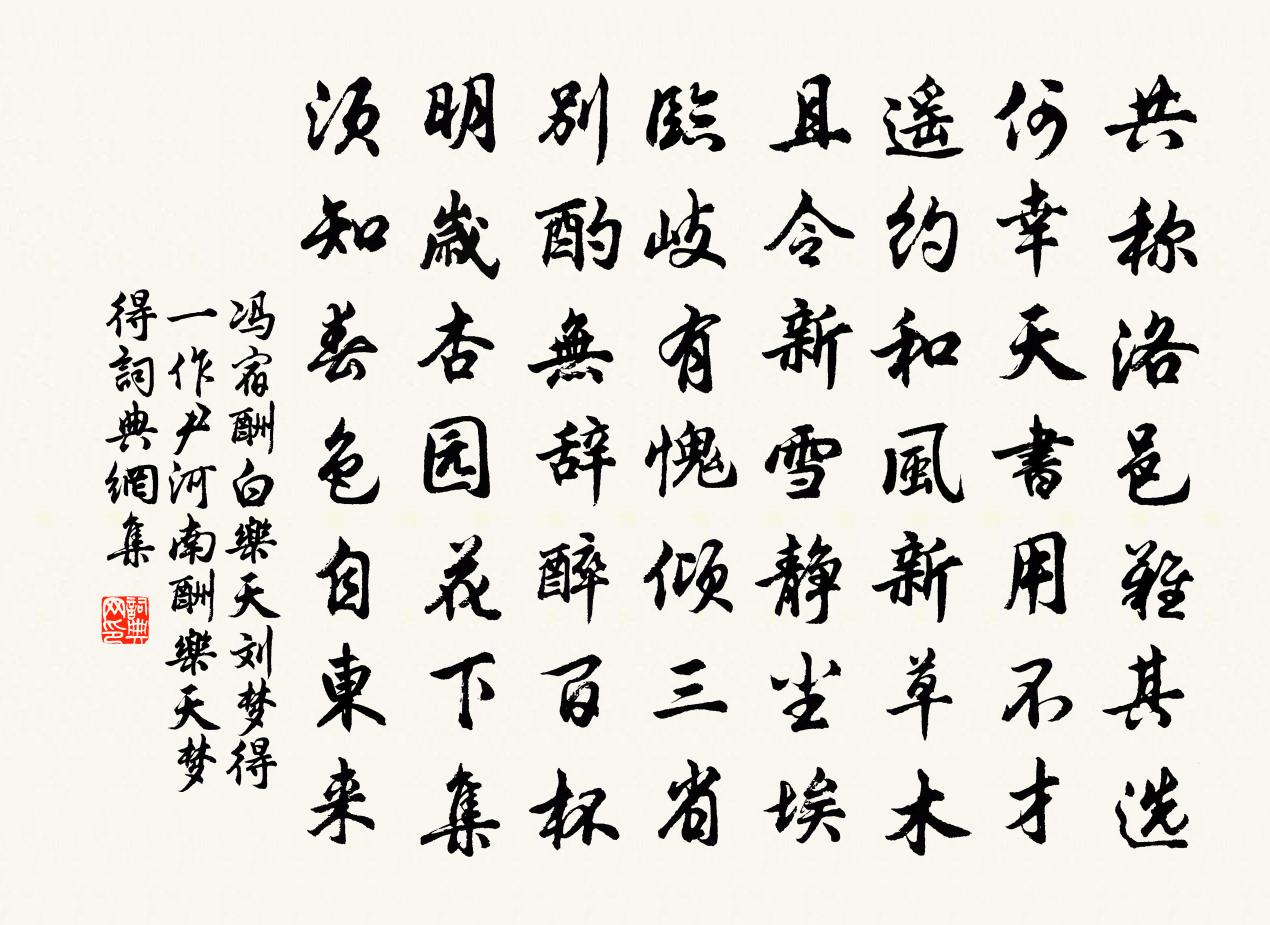 共称洛邑難其选
何幸天書用不才
遥约和風新草木
且令新雪静尘埃
臨岐有愧倾三省
别酌無辞醉百杯
明歳杏园花下集
须知春色自東来
冯宿酬白樂天刘梦得
一作尹河南酬樂天梦
得詞典網集
詞典网印